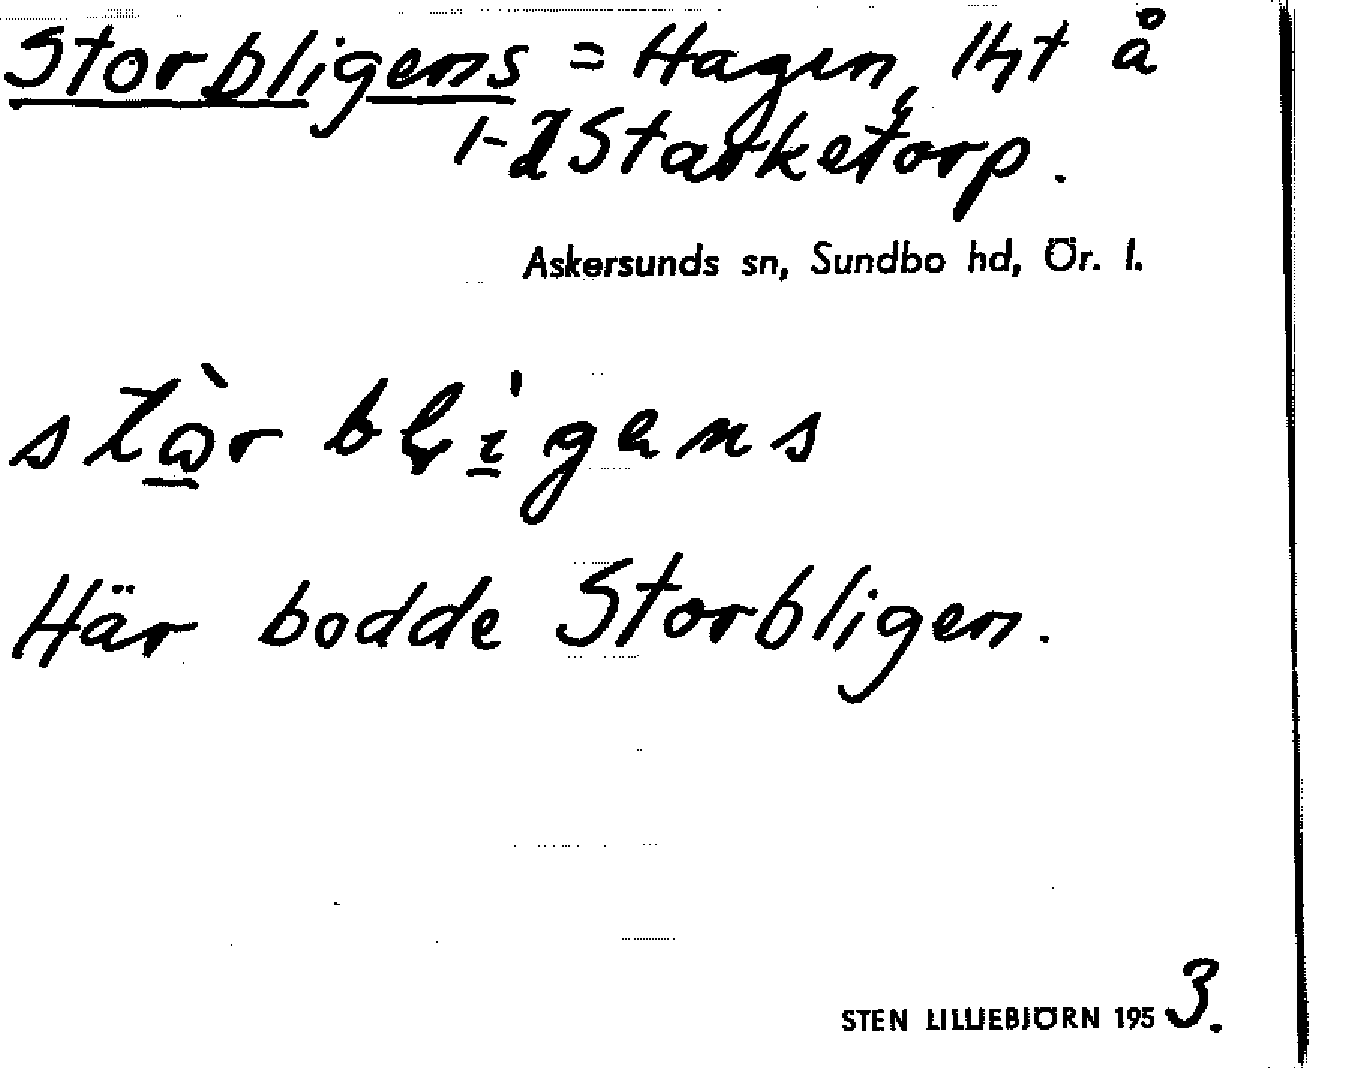 Storbligens = Hagen, lht å
1-2 Starketorp.
Askersunds sn, Sundbo hd, Ör. l.
stɷ̀r blị'gens
Här bodde Storbligen.
STEN LILLIEBJÖRN 1953.